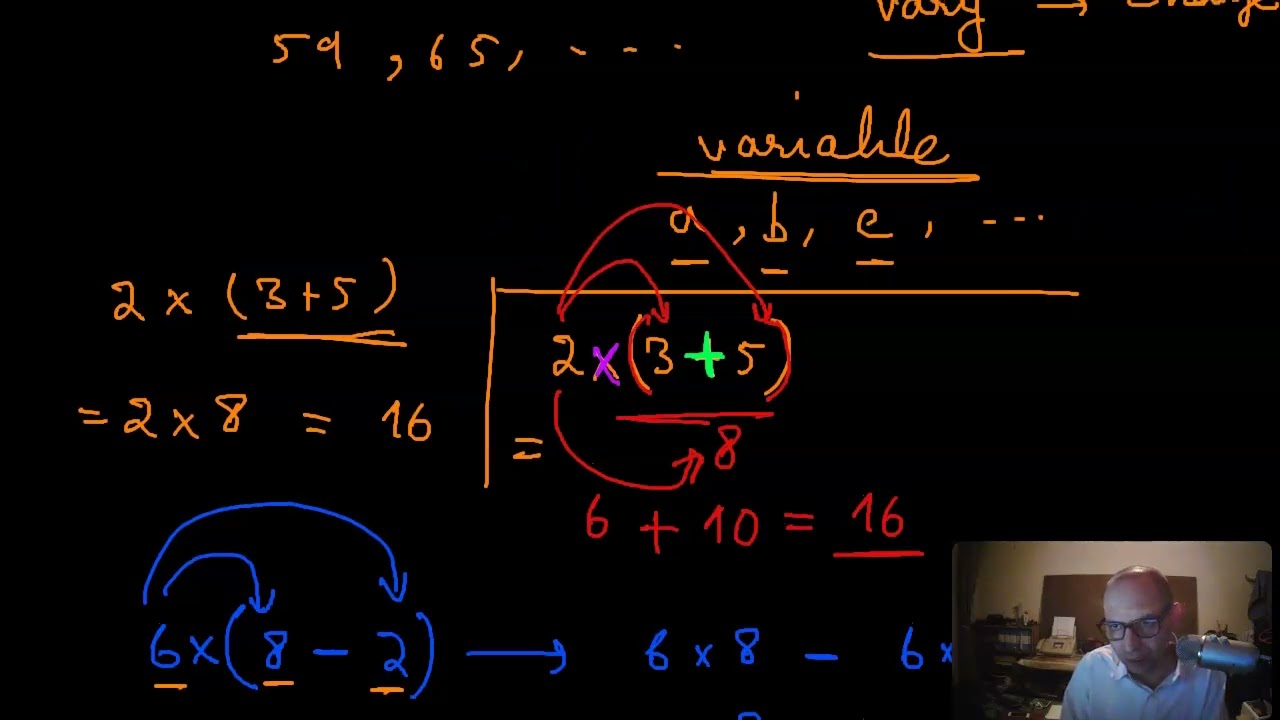 vary →
59 , 65, ....
variable
a , b , c , ...
2 × (3+5)
= 2 × 8 = 16
2 × (3 + 5)
= 8
6 + 10 = 16
6 × (8 - 2) → 6 × 8 - 6 ×